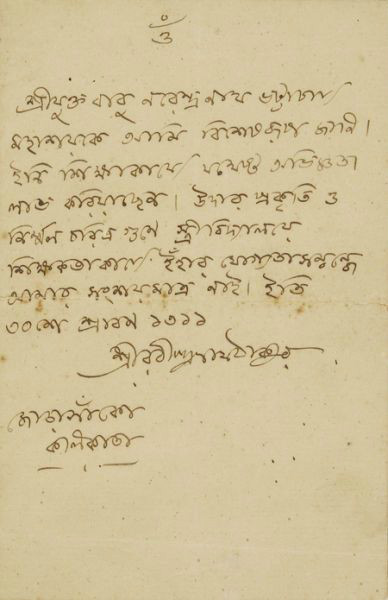 ওঁ
শ্রীযুক্ত বাবু নরেন্দ্রনাথ ভট্টাচার্য্য
মহাশয়কে আমি বিশেষরূপে জানি।
ইনি শিক্ষাকার্য্যে যথেষ্ট অভিজ্ঞতা
লাভ করিয়াছেন। উদার প্রকৃতি ও
নির্ম্মল চরিত্র গুণে স্ত্রীবিদ্যালয়ে
শিক্ষকতাকার্য্যে ইঁহার যোগ্যতাসম্বন্ধে
আমার সংশয়মাত্র নাই। ইতি
৩০শে শ্রাবণ ১৩১১
শ্রীরবীন্দ্রনাথ ঠাকুর
জোড়াসাঁকো
কলিকাতা